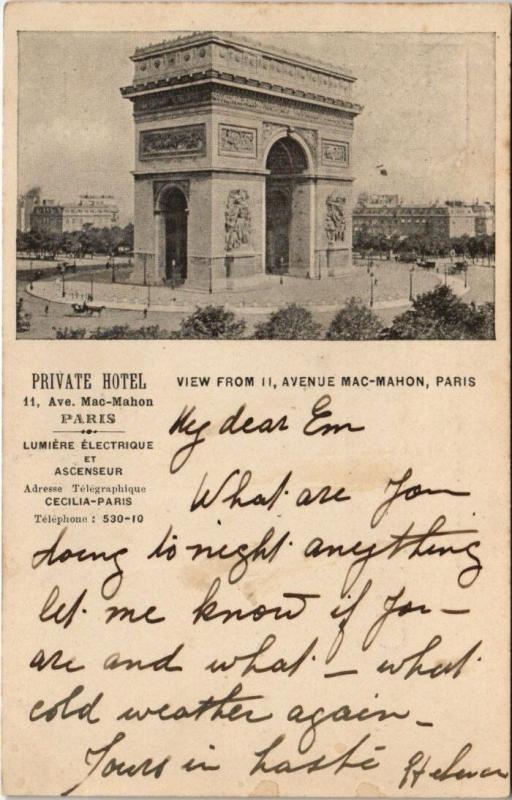 PRIVATE HOTEL
11, Ave. Mac-Mahon
PARIS
LUMIÈRE ÉLECTRIQUE
ET
ASCENSEUR
Adresse Télégraphique
CECILIA-PARIS
Téléphone : 530-10
VIEW FROM 11, AVENUE MAC-MAHON, PARIS
My dear Em
What are you
doing to night anything
let me know if you –
are and what – what
cold weather again –
Yours in haste